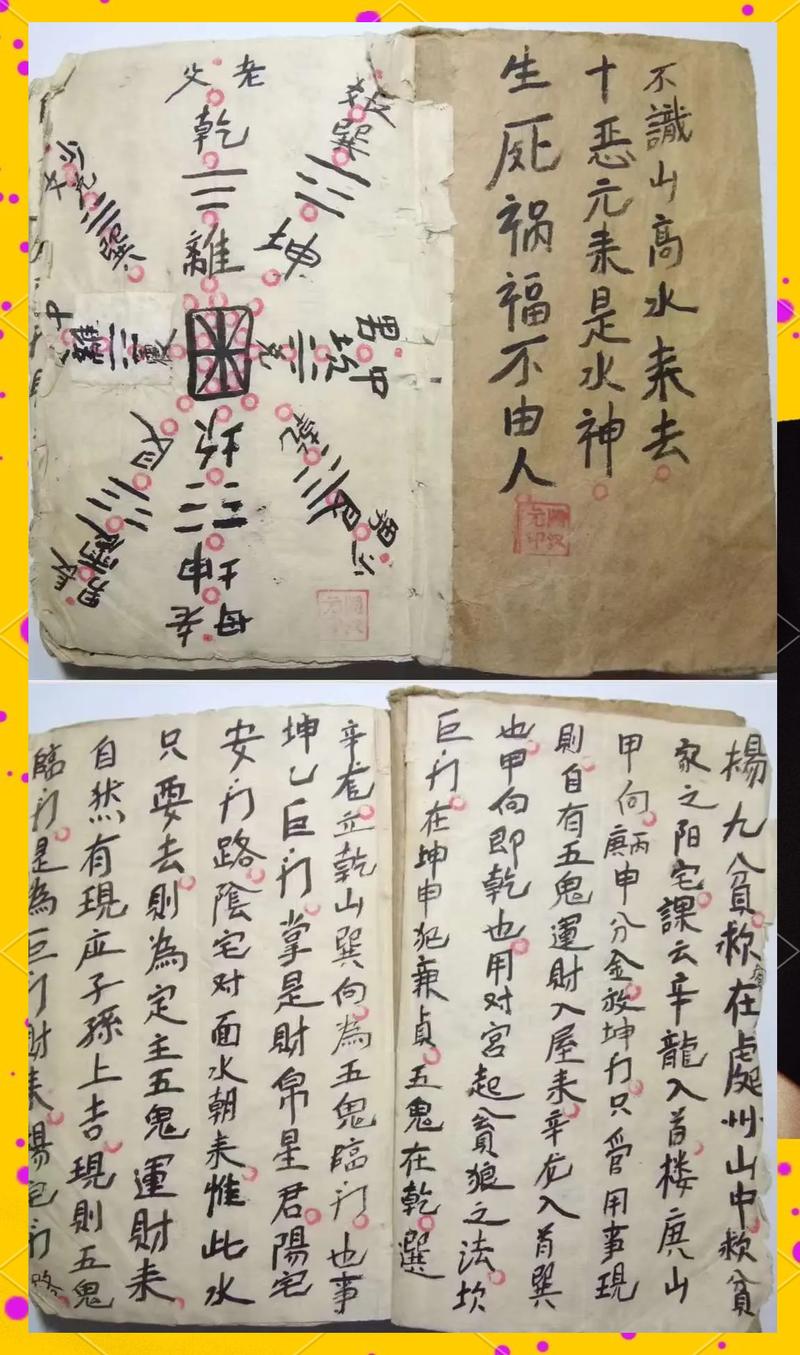 不識山高水耒去
十惡元耒是水神
生死禍福不由人
老父
乾
離
長
巽
坤
兌
坎
中男
乾
艮
少
坎
坤
老母
艮
震
長男
震
離
中
巽
兌
少
楊九八貧救在處州山中救貧
家之阳宅課云辛龍入首楼庚山
甲向庚丙申分金放坤门只管用事現
則自有五鬼運財入屋耒辛龙入首巽
也甲向即乾也用对宮起貪狼之法坎
巨门在坤申犯亷貞五鬼在乾選
辛龙立乾山巽向為五鬼臨门也事
坤乙巨门掌是財帛星君陽宅
安门路陰宅对面水朝耒惟此水
只要去則為定主五鬼運財耒
自然有現应子孫上吉現則五鬼
臨门是為巨门財耒陽宅门路